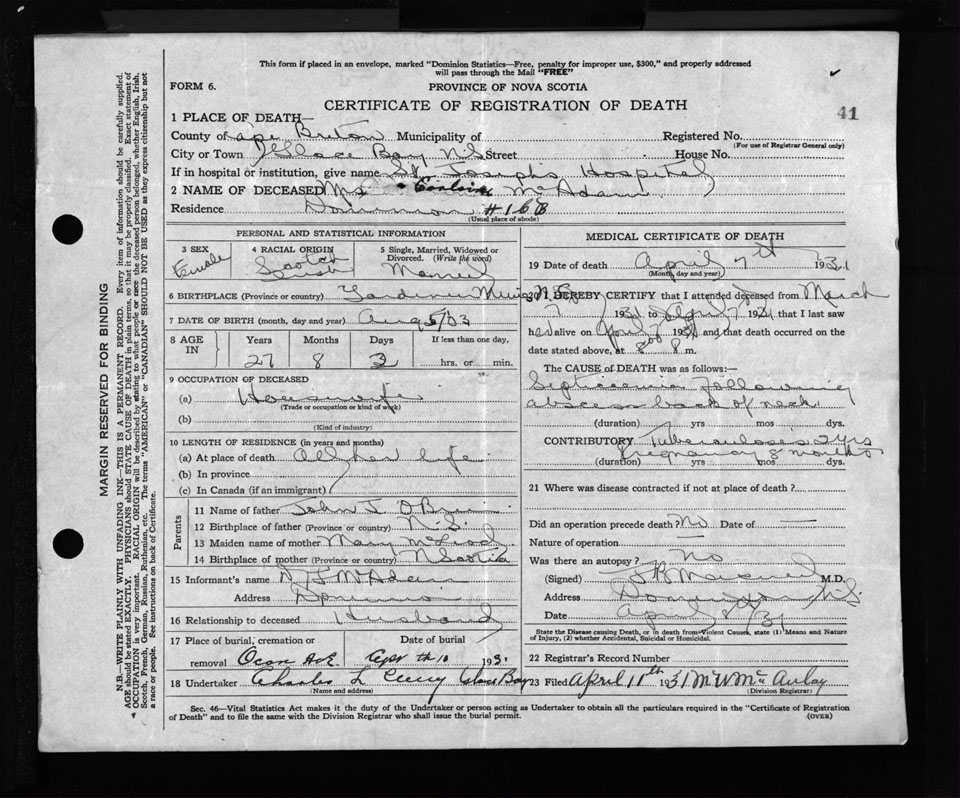 This form if placed in an envelope, marked "Dominion Statistics—Free, penalty for improper use, $300," and properly addressed
will pass through the Mail "FREE"
FORM 6. PROVINCE OF NOVA SCOTIA
CERTIFICATE OF REGISTRATION OF DEATH
41
1 PLACE OF DEATH—
County of Cape Breton Municipality of Registered No.
(For use of Registrar General only)
City or Town Glace Bay N.S. Street House No.
If in hospital or institution, give name St. Joseph's Hospital
2 NAME OF DECEASED Mrs McAdam
Residence Dominion #1 C B
(Usual place of abode)
PERSONAL AND STATISTICAL INFORMATION
3 SEX 4 RACIAL ORIGIN 5 Single, Married, Widowed or
Divorced. (Write the word)
Female Scotch Irish Married
6 BIRTHPLACE (Province or country) Gardiner Mines N.S.
7 DATE OF BIRTH (month, day and year) Aug 5/03
8 AGE IN Years Months Days If less than one day,
27 8 2 hrs. or min.
9 OCCUPATION OF DECEASED
(a) Housewife
(Trade or occupation or kind of work)
(b)
(Kind of industry)
10 LENGTH OF RESIDENCE (in years and months)
(a) At place of death All her life
(b) In province
(c) In Canada (if an immigrant)
Parents
11 Name of father John J. O'Brien
12 Birthplace of father (Province or country) N.S.
13 Maiden name of mother Mary McLeod
14 Birthplace of mother (Province or country) N Scotia
15 Informant's name McAdam
Address Dominion
16 Relationship to deceased Husband
17 Place of burial, cremation or Date of burial
removal Apr 10 193
18 Undertaker Charles L Glace Bay
(Name and address)
MEDICAL CERTIFICATE OF DEATH
19 Date of death April 7th 1931
(Month, day and year)
20 I HEREBY CERTIFY that I attended deceased from March
7 1931 to April 7 1931 that I last saw
her alive on April 7 1931 and that death occurred on
date stated above, at 8 m.
The CAUSE of DEATH was as follows:—
Septicaemia following
abscess back of neck
(duration) yrs mos dys.
CONTRIBUTORY Tuberculosis 2 yrs
Pregnancy 8 months
(duration) yrs mos dys.
21 Where was disease contracted if not at place of death?
Did an operation precede death? No Date of —
Nature of operation
Was there an autopsy? No
(Signed) M.D.
Address Dominion N.S.
Date April 8/31
State the Disease causing Death, or in death from Violent Causes, state (1) Means and Nature
of Injury, (2) whether Accidental, Suicidal or Homicidal.
22 Registrar's Record Number
23 Filed April 11th 1931 McAulay
(Division Registrar)
Sec. 46—Vital Statistics Act makes it the duty of the Undertaker or person acting as Undertaker to obtain all the particulars required in the "Certificate of Registration
of Death" and to file the same with the Division Registrar who shall issue the burial permit. (OVER)
MARGIN RESERVED FOR BINDING
N.B.—WRITE PLAINLY WITH UNFADING INK—THIS IS A PERMANENT RECORD. Every item of information should be carefully supplied.
AGE should be stated EXACTLY. PHYSICIANS should STATE CAUSE OF DEATH in plain terms, so that it may be properly classified. Exact statement of
OCCUPATION is very important. RACIAL ORIGIN will be described by stating to what people or race the deceased person belonged, whether English, Irish,
Scotch, French, German, Russian, Ruthenian, etc. The terms "AMERICAN" or "CANADIAN" SHOULD NOT BE USED as they express citizenship but not
a race or people. See instructions on back of Certificate.